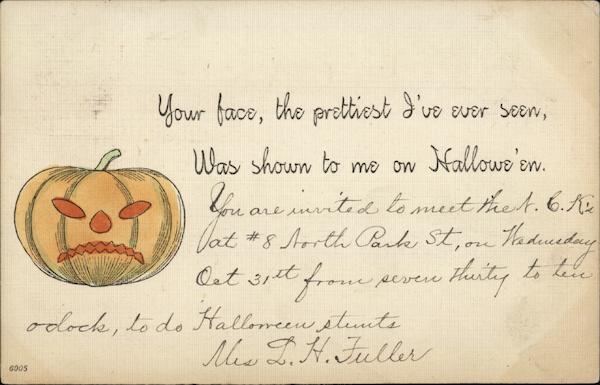 Your face, the prettiest I've ever seen,
Was shown to me on Hallowe'en.
You are invited to meet the N. C. K's
at #8 North Park St, on Wednesday
Oct 31st from seven thirty to ten
oclock, to do Halloween stunts
Mrs L. H. Fuller
6005